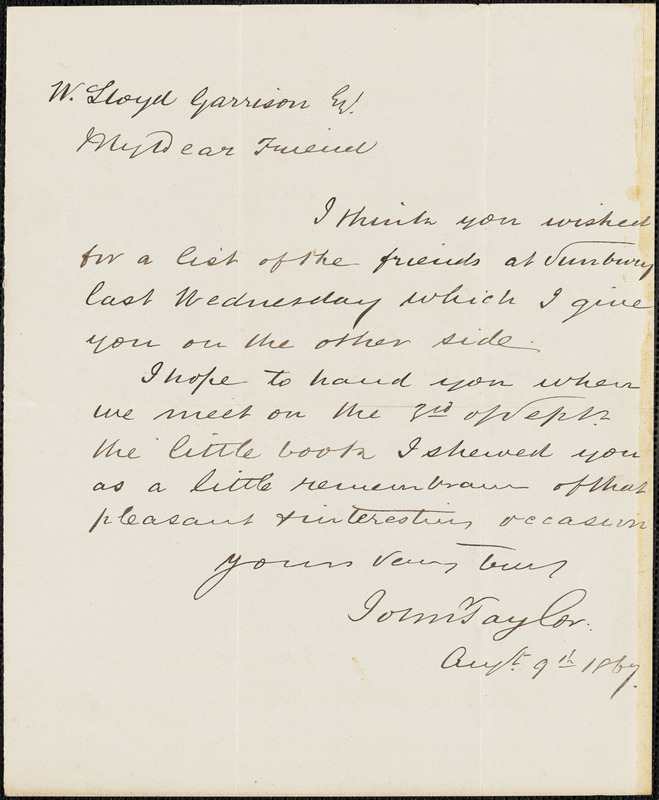 W. Lloyd Garrison Esq.
My Dear Friend
I think you wished
for a list of the friends at Sunbury
last Wednesday which I give
you on the other side.
I hope to hand you when
we meet on the 3rd of Sept.
the little book I shewed you
as a little remembrance of that
pleasant & interesting occasion
yours very truly
John Taylor.
Augt. 9th 1867.